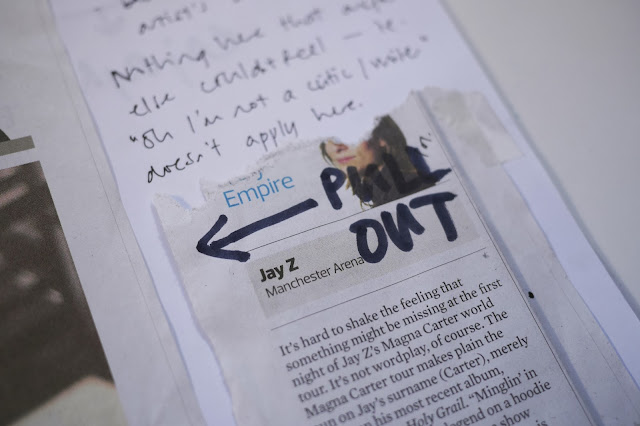 artist's
Nothing here that anyone
else couldn't feel — ie.
"oh I'm not a critic/writer"
doesn't apply here.
Empire
PULL
OUT
Jay Z
Manchester Arena
It's hard to shake the feeling that
something might be missing at the first
night of Jay Z's Magna Carter world
tour. It's not wordplay, of course. The
Magna Carter tour makes plain the
pun on Jay's surname (Carter), merely
on his most recent album,
Holy Grail. "Minglin' in
legend on a hoodie
show